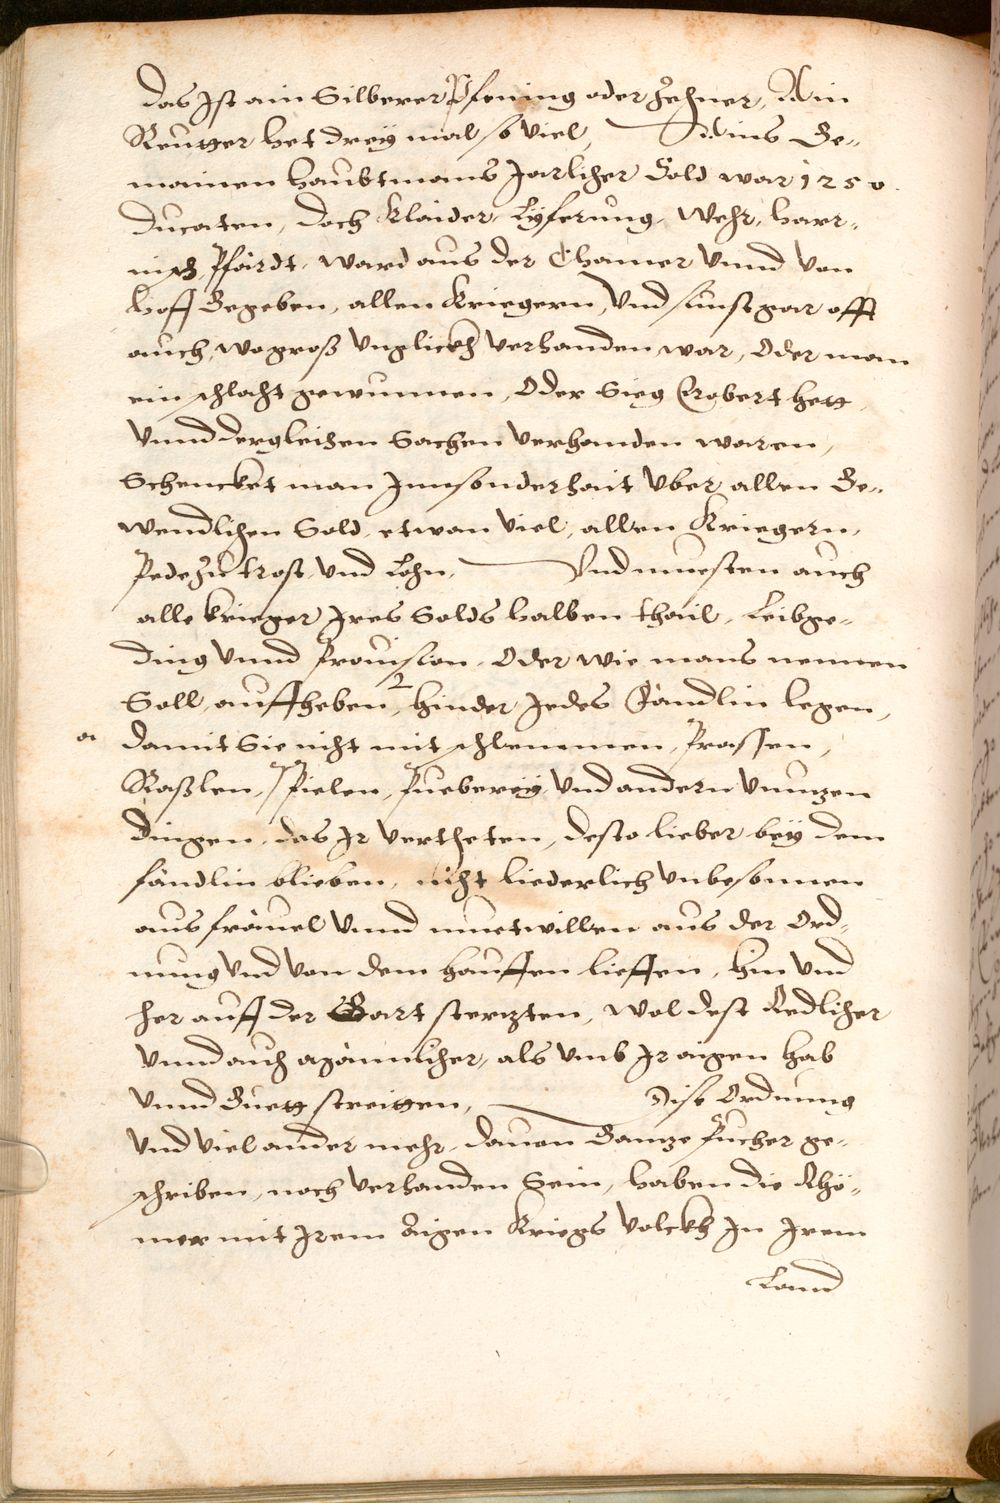 das Jst ain Silberer Pfening oder Zehner, Ain
Reutter het drey mal so viel, Aines Ge-
mainen haubtmans Jarlicher Sold war 1250.
Ducaten, doch Klaider, Lyferung, Wehr, harr-
nisch, Pfärdt, ward aus der Chamer Vnnd Von
hoff Gegeben, allen Kriegern, Vnd sunst gar offt
auch, wo groß Vnglickh Verhanden war, Oder man
ein schlacht gewunnen, Oder Sieg Erobert hett
Vnnd dergleichen Sachen Verhanden waren,
Schencket man Jnn sonderhait Vber allen Ge-
wendlichen Sold, etwan Viel, allen Kriegern,
Pede Zu trost Vnd Lohn, Vnd muesten auch
alle krieger Jres Solds halben thail, Leibge-
ding Vnnd Prouision, Oder wie mans nennen
Soll, auffheben, 2 hinder Jedes Fändlin legen,
a damit Sie nicht mit schlemmen, Prassen,
Raßlen, Spielen, Pueberey Vnd andern Vnnuzen
dingen, das Jr Vertheten, desto lieber bey dem
fändlin blieben, nicht liederlich Vnbesonnen
aus fräuel Vnnd muetwillen aus der Ord-
nung Vnd Von dem hauffen lieffen, hin Vnd
her auff der Gart sterzten, Wol dest Redlicher
Vnnd auch männlicher, als Vmb Jr aigen hab
Vnnd Guett streitten, Dise Ordnung
Vnd Viel ander mehr, dauon Gannze Pucher ge-
schriben, noch Verhanden Sein, haben die Rhö-
mer mit Jrem Aigen Kriegs Volckh Jn Jrem
Lannd